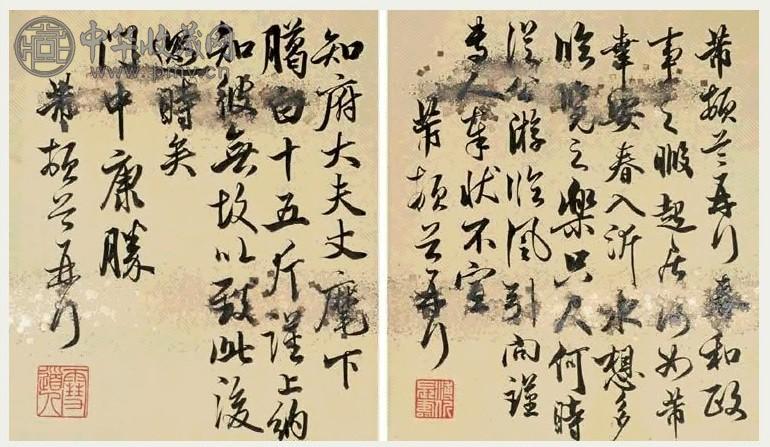 芾頓首再拜春和政
事之暇起居何如芾
幸安春入沂水想多
臨覽之樂只人何時
從公游臨風引向謹
專人奉狀不宣
芾頓首再拜
知府大夫丈麾下
白十五斤謹上納
知彼無故以致此後
時矣
門中康勝
芾頓首再拜
中华收藏网